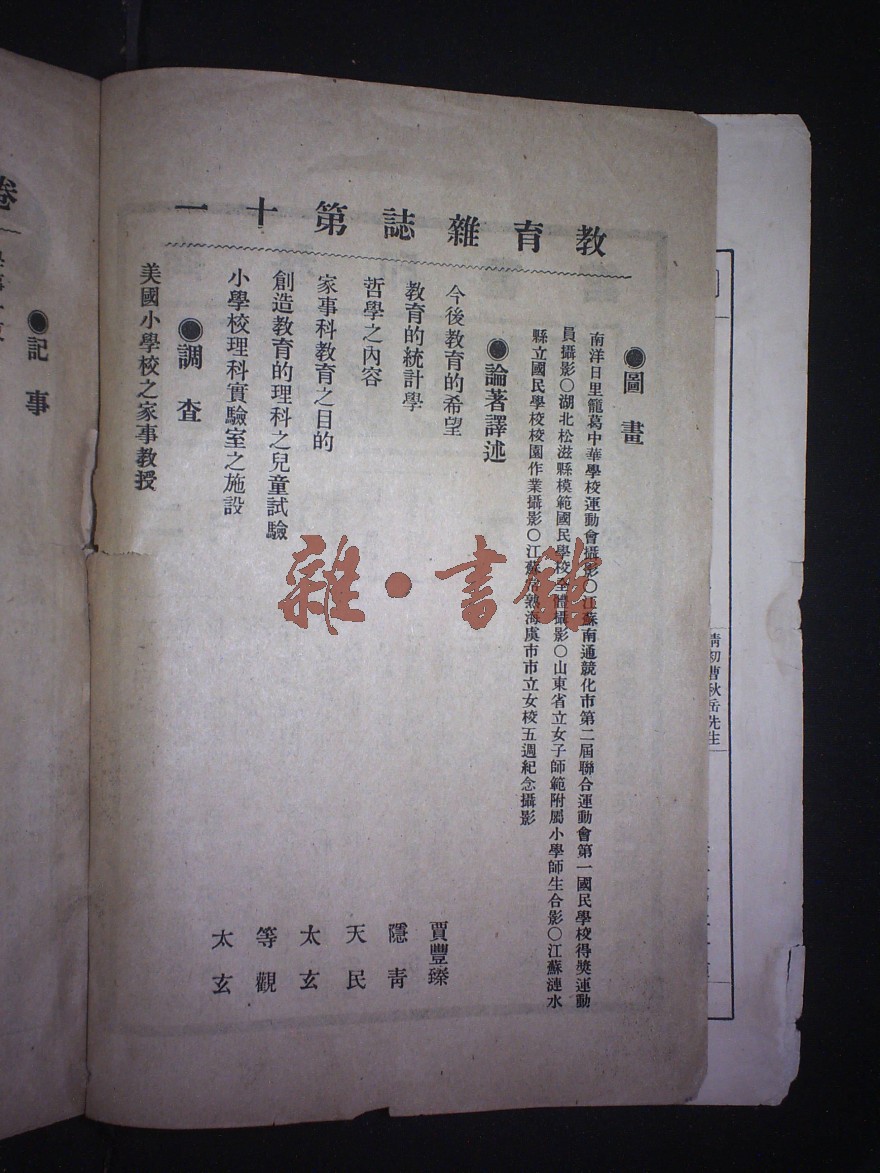 教育雜誌第十一
●圖畫
南洋日里籠葛中華學校運動會攝影○江蘇南通競化市第二屆聯合運動會第一國民學校得獎運動
員攝影○湖北松滋縣模範國民學校全體攝影○山東省立女子師範附屬小學師生合影○江蘇漣水
縣立國民學校校園作業攝影○江蘇常熟海虞市市立女校五週紀念攝影
●論著譯述
今後教育的希望 賈豐臻
教育的統計學 隱青
哲學之內容 天民
家事科教育之目的 太玄
創造教育的理科之兒童試驗 等觀
小學校理科實驗室之施設 太玄
●調查
美國小學校之家事教授
卷
●記事
清初曹秋岳先生
雜·書館